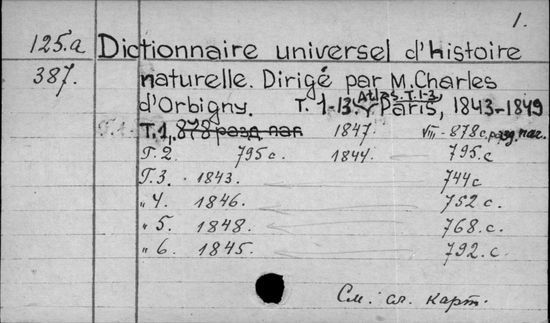 1.
125.a Dictionnaire universel d'histoire
387. naturelle. Dirigé par M. Charles
d'Orbigny. T. 1-13. Atlas. T. 1-3. Paris, 1843-1849
Т. 1, 878 разд. паг. 1847. VIII - 878 с. разд. паг.
Т. 2 795 с 1844. 795. с
Т. 3. 1843. 744 с
" 4. 1846. 752. с
" 5. 1848. 768. с.
" 6. 1845. 792. с.
См. сл. карт.